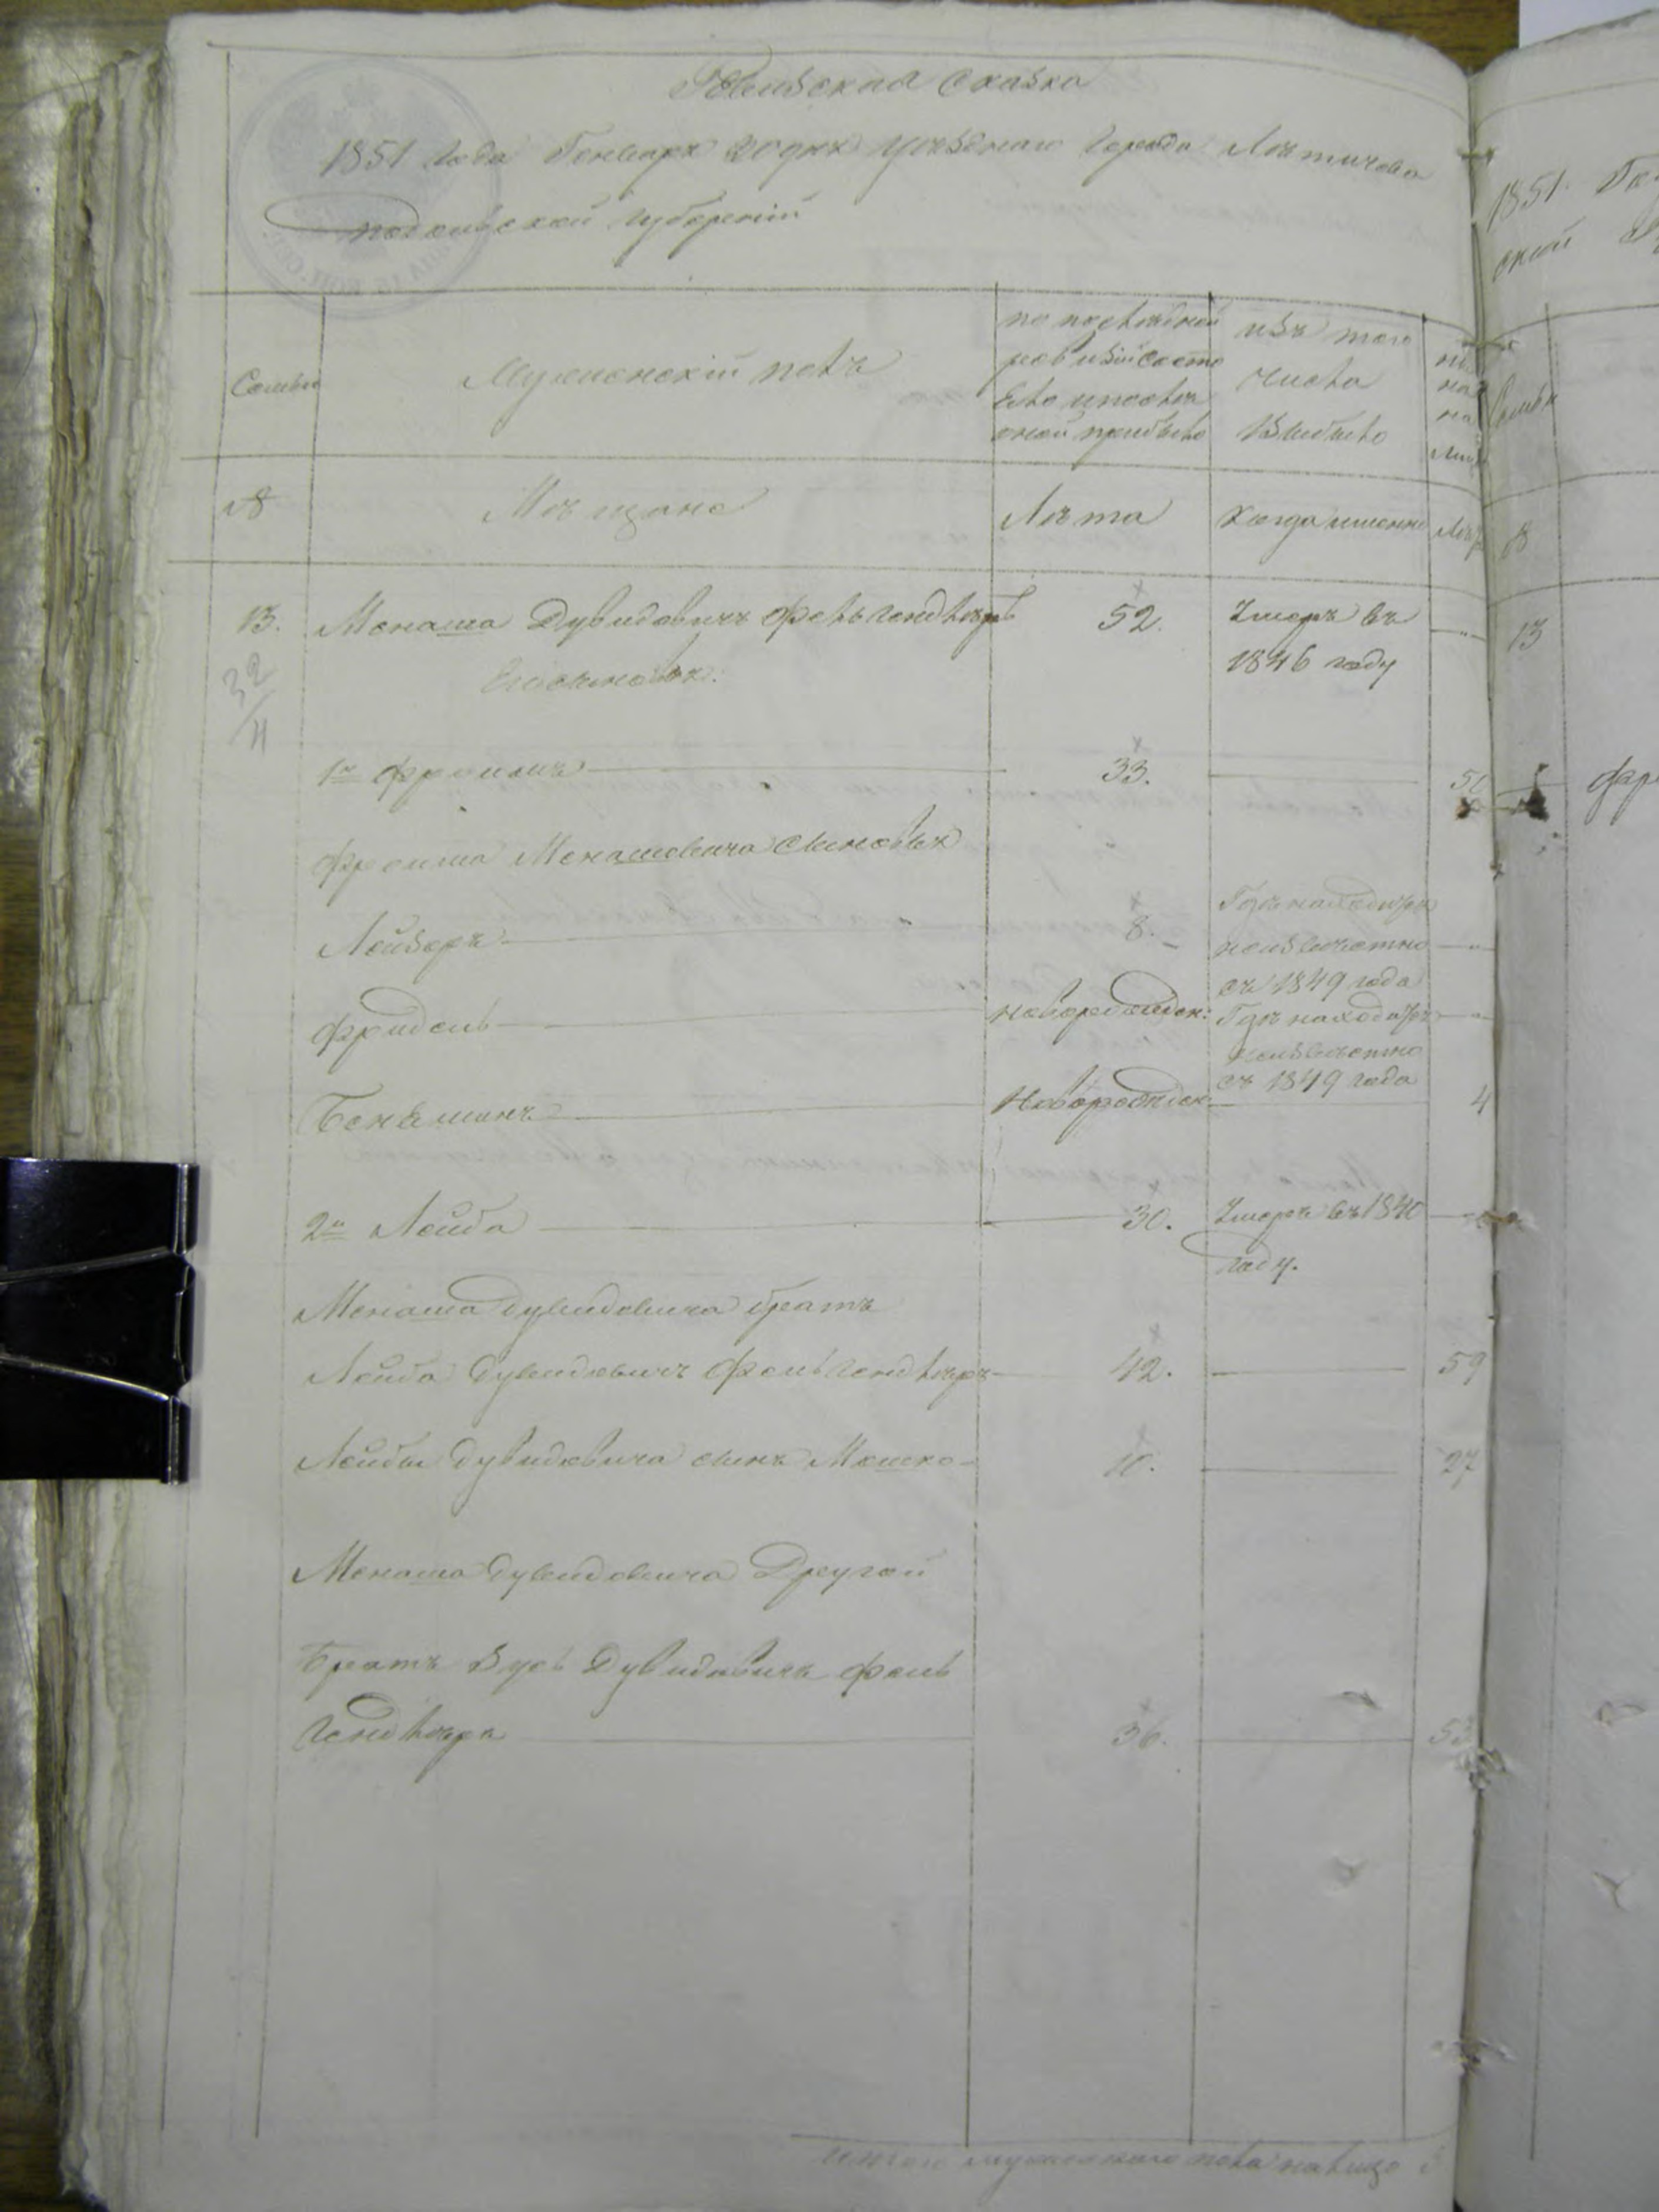 Ревизская Сказка
1851 года Генваря 20 дня уезднаго Города Летичева
подольской губерніи
Семьи
Мужескій полъ
по последней
ревизіи состо
яло и после
оной прибыло
изъ того
числа
Выбыло
№
Мещане
Лета
Когда именно
Лета
13.
32/11
Менаша Дувидовичъ Фельгендлеръ
52.
Умеръ въ
1846 году
Его сыновья:
1й Фроимъ
33.
Фроима Менашовича Сыновья
Лейзеръ
8.
Где находится
неизвестно
съ 1849 года
Фридель
новорожден:
Где находится
неизвестно
съ 1849 года
Беньяминъ
Новорожден:
4
2й Лейба
30.
Умеръ въ 1840
году.
Менаша Дувидовича братъ
Лейба Дувидовичъ Фельгендлеръ
42.
59
Лейбы Дувидовича сынъ Мошко
10.
27
Менаша Дувидовича Другой
Братъ Зусь Дувидовичъ Фель
гендлеръ
36.
53
итого мужескаго пола на лицо
1851
13